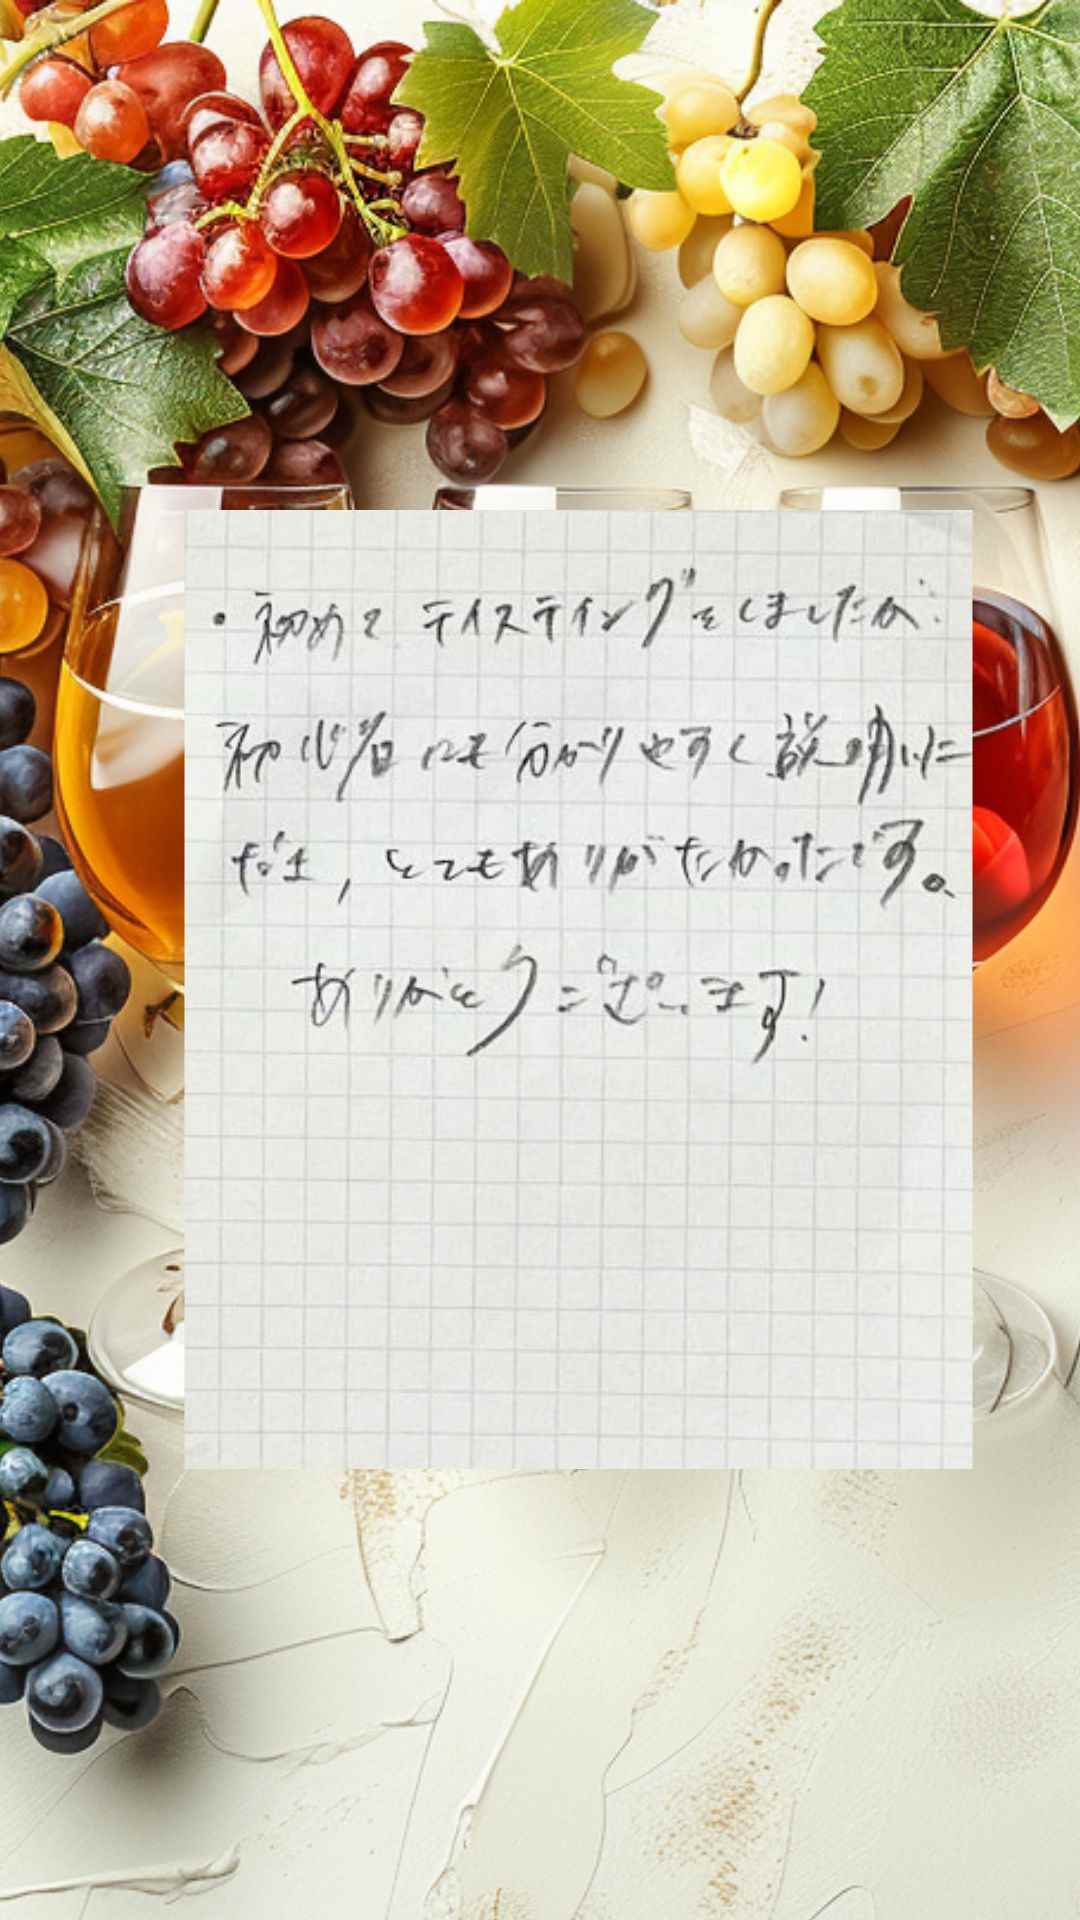 ・初めてテイスティングをしましたが、
初心者にも分かりやすく説明いた
だき、とてもありがたかったです。
ありがとうございます!